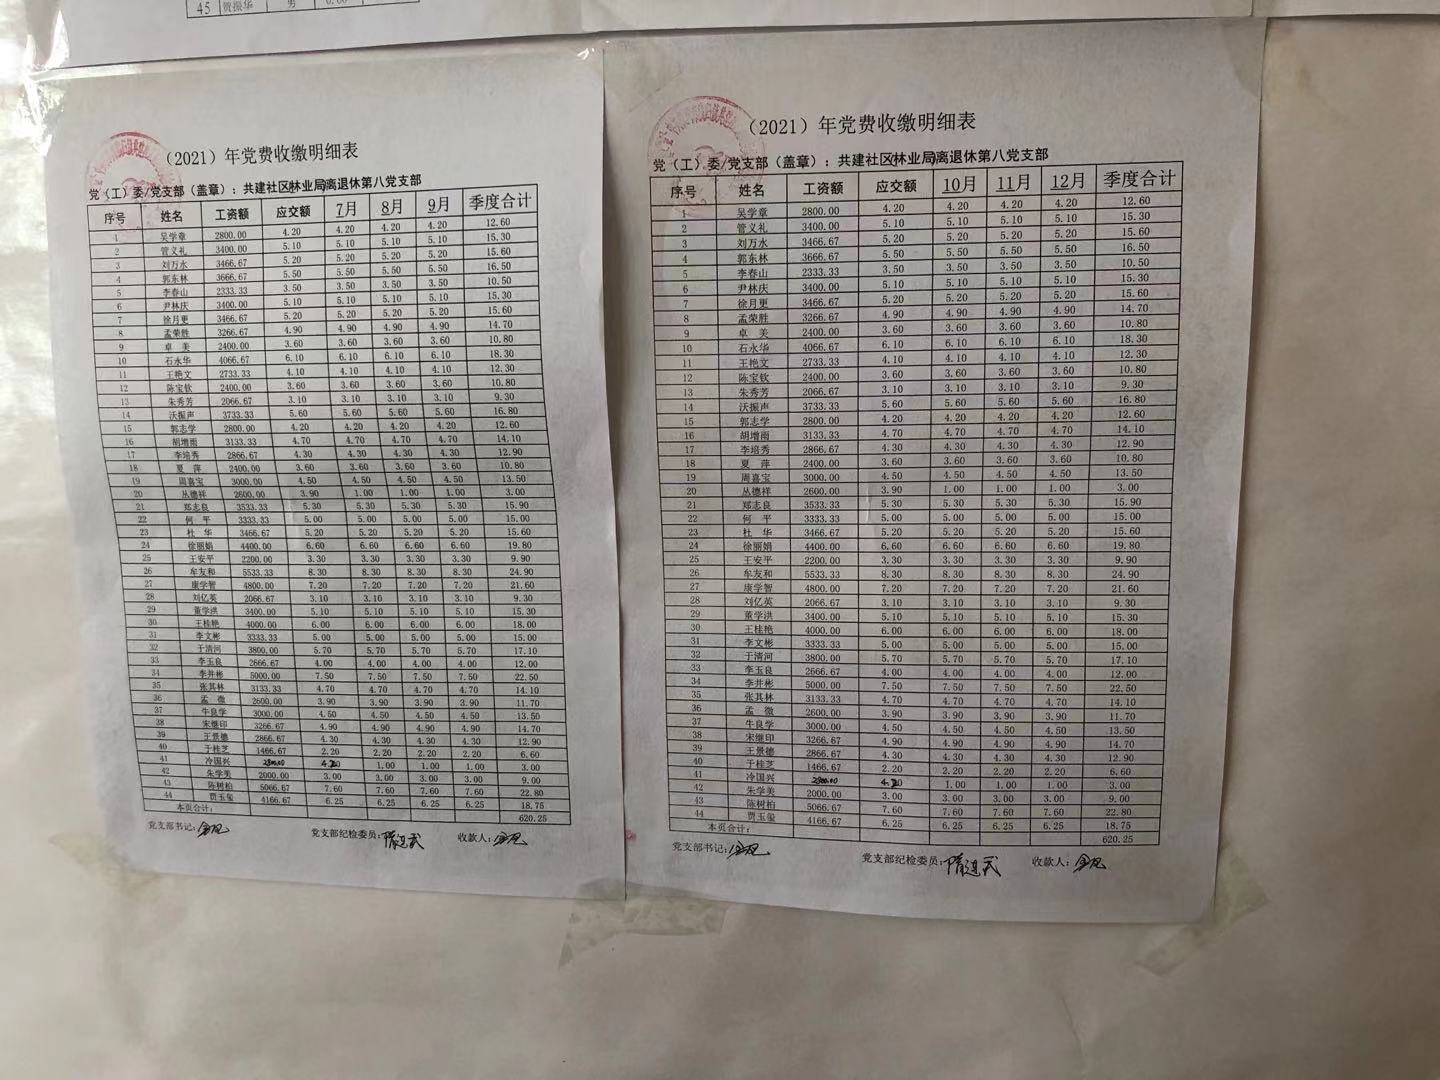 45 贺振华 男 0.00
（2021）年党费收缴明细表
党（工）委/党支部（盖章）：共建社区林业局离退休第八党支部
序号 姓名 工资额 应交额 7月 8月 9月 季度合计
1 吴学章 2800.00 4.20 4.20 4.20 4.20 12.60
2 管义礼 3400.00 5.10 5.10 5.10 5.10 15.30
3 刘万水 3466.67 5.20 5.20 5.20 5.20 15.60
4 郭东林 3666.67 5.50 5.50 5.50 5.50 16.50
5 李春山 2333.33 3.50 3.50 3.50 3.50 10.50
6 尹林庆 3400.00 5.10 5.10 5.10 5.10 15.30
7 徐月更 3466.67 5.20 5.20 5.20 5.20 15.60
8 孟荣胜 3266.67 4.90 4.90 4.90 4.90 14.70
9 卓 美 2400.00 3.60 3.60 3.60 3.60 10.80
10 石永华 4066.67 6.10 6.10 6.10 6.10 18.30
11 王艳文 2733.33 4.10 4.10 4.10 4.10 12.30
12 陈宝钦 2400.00 3.60 3.60 3.60 3.60 10.80
13 朱秀芳 2066.67 3.10 3.10 3.10 3.10 9.30
14 沃振声 3733.33 5.60 5.60 5.60 5.60 16.80
15 郭志学 2800.00 4.20 4.20 4.20 4.20 12.60
16 胡增雨 3133.33 4.70 4.70 4.70 4.70 14.10
17 李培秀 2866.67 4.30 4.30 4.30 4.30 12.90
18 夏 萍 2400.00 3.60 3.60 3.60 3.60 10.80
19 周喜宝 3000.00 4.50 4.50 4.50 4.50 13.50
20 丛德祥 2600.00 3.90 1.00 1.00 1.00 3.00
21 郑志良 3533.33 5.30 5.30 5.30 5.30 15.90
22 何 平 3333.33 5.00 5.00 5.00 5.00 15.00
23 杜 华 3466.67 5.20 5.20 5.20 5.20 15.60
24 徐丽娟 4400.00 6.60 6.60 6.60 6.60 19.80
25 王安平 2200.00 3.30 3.30 3.30 3.30 9.90
26 牟友和 5533.33 8.30 8.30 8.30 8.30 24.90
27 康学智 4800.00 7.20 7.20 7.20 7.20 21.60
28 刘亿英 2066.67 3.10 3.10 3.10 3.10 9.30
29 董学洪 3400.00 5.10 5.10 5.10 5.10 15.30
30 王桂艳 4000.00 6.00 6.00 6.00 6.00 18.00
31 李文彬 3333.33 5.00 5.00 5.00 5.00 15.00
32 于清河 3800.00 5.70 5.70 5.70 5.70 17.10
33 李玉良 2666.67 4.00 4.00 4.00 4.00 12.00
34 李井彬 5000.00 7.50 7.50 7.50 7.50 22.50
35 张其林 3133.33 4.70 4.70 4.70 4.70 14.10
36 孟 微 2600.00 3.90 3.90 3.90 3.90 11.70
37 牛良学 3000.00 4.50 4.50 4.50 4.50 13.50
38 宋继印 3266.67 4.90 4.90 4.90 4.90 14.70
39 王景德 2866.67 4.30 4.30 4.30 4.30 12.90
40 于桂芝 1466.67 2.20 2.20 2.20 2.20 6.60
41 冷国兴 2800.00 4.20 1.00 1.00 1.00 3.00
42 朱学美 2000.00 3.00 3.00 3.00 3.00 9.00
43 陈树柏 5066.67 7.60 7.60 7.60 7.60 22.80
44 贾玉玺 4166.67 6.25 6.25 6.25 6.25 18.75
本页合计： 620.25
党支部书记： 党支部纪检委员： 收款人：
（2021）年党费收缴明细表
党（工）委/党支部（盖章）：共建社区林业局离退休第八党支部
序号 姓名 工资额 应交额 10月 11月 12月 季度合计
1 吴学章 2800.00 4.20 4.20 4.20 4.20 12.60
2 管义礼 3400.00 5.10 5.10 5.10 5.10 15.30
3 刘万水 3466.67 5.20 5.20 5.20 5.20 15.60
4 郭东林 3666.67 5.50 5.50 5.50 5.50 16.50
5 李春山 2333.33 3.50 3.50 3.50 3.50 10.50
6 尹林庆 3400.00 5.10 5.10 5.10 5.10 15.30
7 徐月更 3466.67 5.20 5.20 5.20 5.20 15.60
8 孟荣胜 3266.67 4.90 4.90 4.90 4.90 14.70
9 卓 美 2400.00 3.60 3.60 3.60 3.60 10.80
10 石永华 4066.67 6.10 6.10 6.10 6.10 18.30
11 王艳文 2733.33 4.10 4.10 4.10 4.10 12.30
12 陈宝钦 2400.00 3.60 3.60 3.60 3.60 10.80
13 朱秀芳 2066.67 3.10 3.10 3.10 3.10 9.30
14 沃振声 3733.33 5.60 5.60 5.60 5.60 16.80
15 郭志学 2800.00 4.20 4.20 4.20 4.20 12.60
16 胡增雨 3133.33 4.70 4.70 4.70 4.70 14.10
17 李培秀 2866.67 4.30 4.30 4.30 4.30 12.90
18 夏 萍 2400.00 3.60 3.60 3.60 3.60 10.80
19 周喜宝 3000.00 4.50 4.50 4.50 4.50 13.50
20 丛德祥 2600.00 3.90 1.00 1.00 1.00 3.00
21 郑志良 3533.33 5.30 5.30 5.30 5.30 15.90
22 何 平 3333.33 5.00 5.00 5.00 5.00 15.00
23 杜 华 3466.67 5.20 5.20 5.20 5.20 15.60
24 徐丽娟 4400.00 6.60 6.60 6.60 6.60 19.80
25 王安平 2200.00 3.30 3.30 3.30 3.30 9.90
26 牟友和 5533.33 8.30 8.30 8.30 8.30 24.90
27 康学智 4800.00 7.20 7.20 7.20 7.20 21.60
28 刘亿英 2066.67 3.10 3.10 3.10 3.10 9.30
29 董学洪 3400.00 5.10 5.10 5.10 5.10 15.30
30 王桂艳 4000.00 6.00 6.00 6.00 6.00 18.00
31 李文彬 3333.33 5.00 5.00 5.00 5.00 15.00
32 于清河 3800.00 5.70 5.70 5.70 5.70 17.10
33 李玉良 2666.67 4.00 4.00 4.00 4.00 12.00
34 李井彬 5000.00 7.50 7.50 7.50 7.50 22.50
35 张其林 3133.33 4.70 4.70 4.70 4.70 14.10
36 孟 微 2600.00 3.90 3.90 3.90 3.90 11.70
37 牛良学 3000.00 4.50 4.50 4.50 4.50 13.50
38 宋继印 3266.67 4.90 4.90 4.90 4.90 14.70
39 王景德 2866.67 4.30 4.30 4.30 4.30 12.90
40 于桂芝 1466.67 2.20 2.20 2.20 2.20 6.60
41 冷国兴 2800.00 4.20 1.00 1.00 1.00 3.00
42 朱学美 2000.00 3.00 3.00 3.00 3.00 9.00
43 陈树柏 5066.67 7.60 7.60 7.60 7.60 22.80
44 贾玉玺 4166.67 6.25 6.25 6.25 6.25 18.75
本页合计： 620.25
党支部书记： 党支部纪检委员： 收款人：